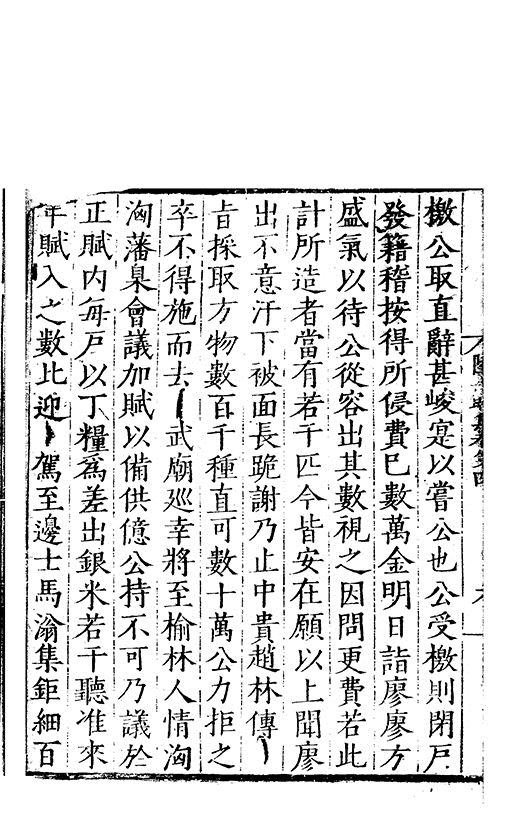 檄公取直辭甚峻寔以嘗公也公受檄則閉戸
發籍稽按得所侵費已數萬金明日詣廖廖方
盛氣以待公從容出其數視之因問更費若此
計所造者當有若干匹今皆安在願以上聞廖
出不意汗下被面長跪謝乃止中貴趙林傳
旨採取方物數百千種直可數十萬公力拒之
卒不得施而去 武廟巡幸將至榆林人情洶
洶藩臬會議加賦以備供億公持不可乃議於
正賦内每戸以丁糧爲差出銀米若干聽准來
年賦入之數比迎 駕至邊士馬滃集鉅細百